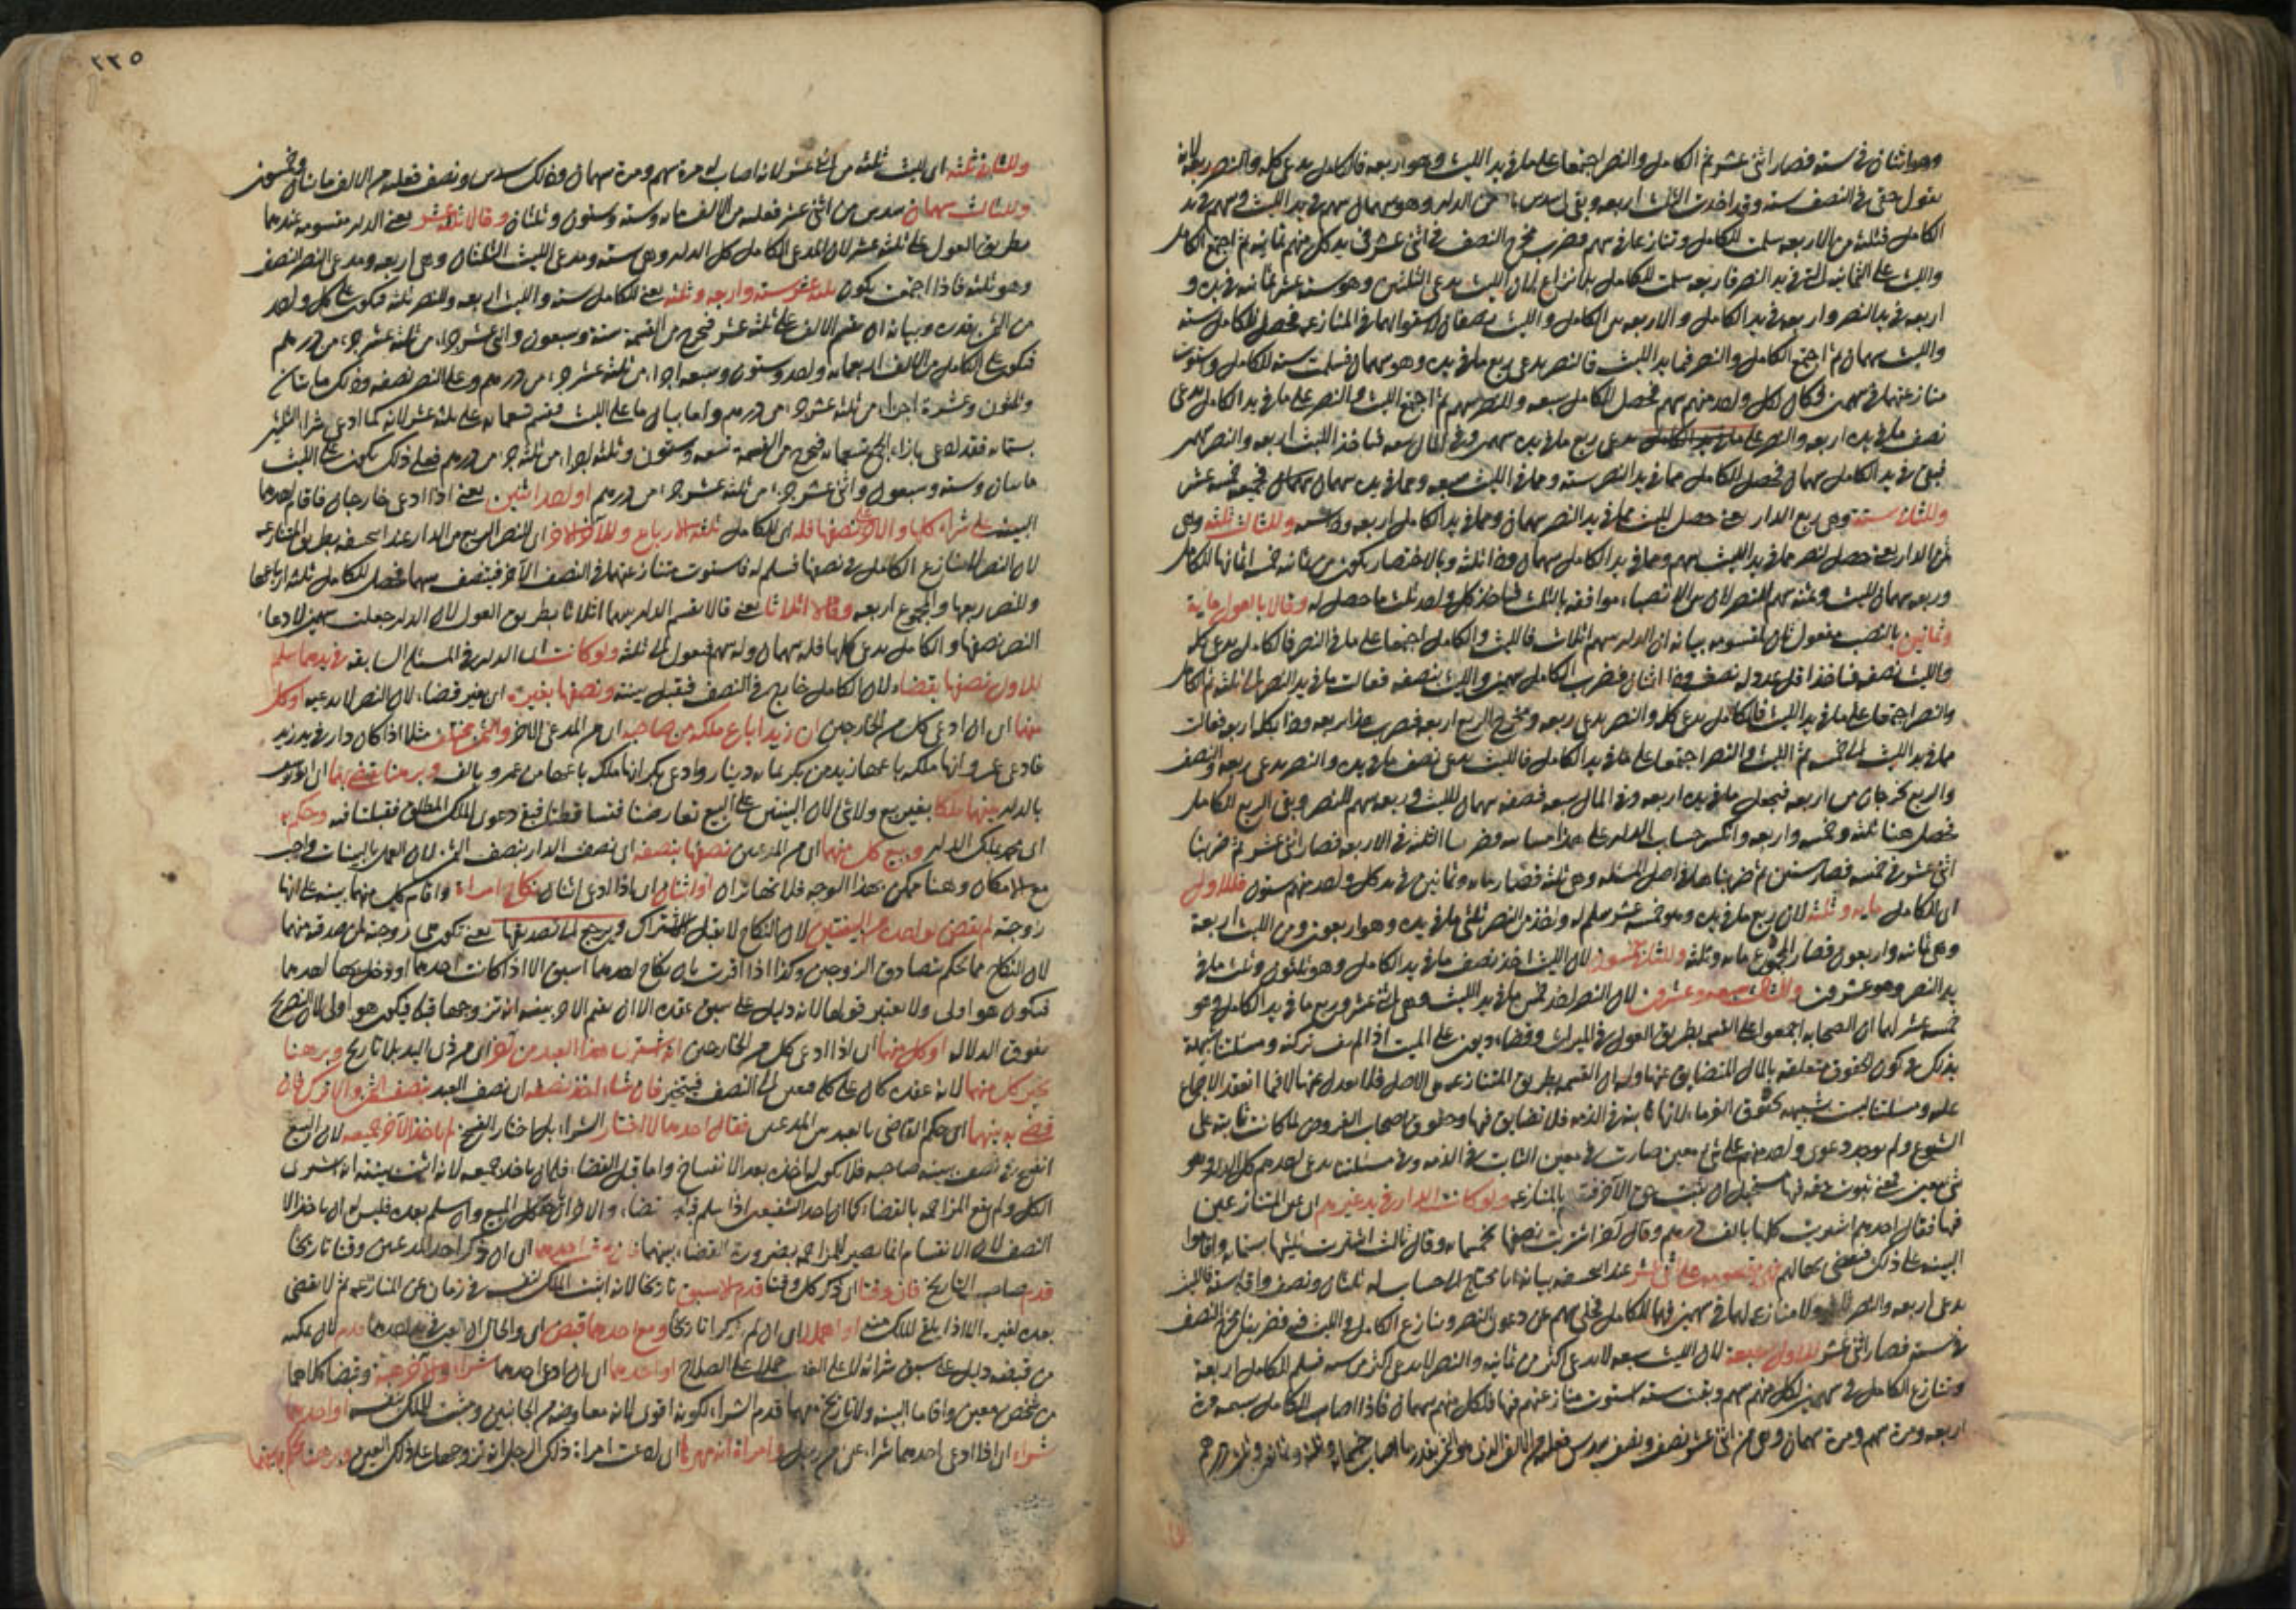 وهو اثنان في ستة فصار اثني عشر ثم الكامل والنصر اجتمعا على ما في يد الليث وهو اربعة فالكامل يدعي كله والنصر ربعه لانه
يقول حقي في النصف ستة وقد اخذت الثلث اربعة وبقي لي سدس من الدار وهو سهمان سهم في يد الليث وسهم في يد
الكامل فثلثة من الاربعة سلمت للكامل وتنازعا في سهم فضرب مخرج النصف في اثني عشر في يد كل منهم ثمانية ثم اجتمع الكامل
والليث على الثمانية التي في يد النصر فاربعة سلمت للكامل بلا نزاع لان الليث يدعي الثلثين وهو ستة عشر ثمانية في يده و
اربعة في يد النصر واربعة في يد الكامل والاربعة بين الكامل والليث نصفان لاستوائهما في المنازعة فحصل للكامل ستة
والليث سهمان ثم اجتمع الكامل والنصر فيما في يد الليث فالنصر يدعي ربع ما في يده وهو سهمان فسلمت ستة للكامل واستوت
منازعتهما في سهمين فكان لكل واحد منهم سهم فحصل للكامل سبعة وللنصر سهم ثم اجتمع الليث والنصر على ما في يد الكامل يدعي
نصف ما في يده اربعة والنصر يدعي ربع ما في يده سهمين وفي المال سعة فياخذ الليث اربعة والنصر سهمين
فبقي في يد الكامل سهمان فحصل للكامل مما في يد النصر ستة ومما في الليث سبعة ومما في يده سهمان فجميعه خمسة عشر
وللثاني ستة وهي ربع الدار يعني حصل لليث مما في يد النصر سهمان ومما في يد الكامل اربعة وذا ستة وللثالث ثلثة وهي
ثمن الدار يعني حصل لنصر مما في يد الليث سهم ومما في يد الكامل سهمان وذا ثلثة وبالاختصار يكون من ثمانية خمسة اثمانها للكامل
وربعه سهمان لليث وثمنه سهم للنصر لان بين الانصباء موافقة بالثلث فياخذ كل واحد ثلث ما حصل له وقالا بالعول مائة
وثمانين بالنصب مفعول ثان لمقسومة بيانه ان الدار سهم اثلاث فالليث والكامل اجتمعا على ما في النصر فالكامل يدعي كله
والليث نصفه فياخذ اقل عدد له نصف وذا اثنان فضرب الكامل بسهمين والليث بنصفه فعالت ما في يد النصر الى ثلثة ثم الكامل
والنصر اجتمعا على ما في يد الليث فالكامل يدعي كل والنصر يدعي ربعه ومخرج الربع اربعة فضرب هذا بربعه وذا بكله اربعة فعالت
ما في يد الليث الى خمسة ثم الليث والنصر اجتمعا على ما في يد الكامل فالليث يدعي نصف ما في يده والنصر يدعي ربعه والنصف
والربع يخرجان من اربعة فيجعل ما في يده اربعة وفي المال سعة فنصفه سهمان لليث وربعه سهم للنصر وبقي الربع للكامل
فحصل هنا ثلثة وخمسة واربعة وانكسر حساب الدار على هذا فضربنا الثلثة في الاربعة فصار اثني عشر ثم ضربنا
اثني عشر في خمسة فصار ستين ثم ضربناها في اصل المسئلة وهي ثلثة فصار مائة وثمانين في يد كل واحد منهم ستون فللاول
اي للكامل مائة وثلثة لان ربع ما في يده وهو خمسة عشر سلم له واخذ من النصر ثلثي ما في يده وهو اربعون ومن الليث اربعة
وهي ثمانية واربعون فصار المجموع مائة وثلثة وللثاني خمسون لان الليث اخذ نصف ما في يد الكامل وهو ثلثون وثلث ما في
يد النصر وهو عشرون وللثالث سبعة وعشرون لان النصر اخذ خمس ما في يد الليث وهي اثنى عشر وربع ما في يد الكامل وهو
خمسة عشر لهما ان الصحابة اجمعوا على القسمة بطريق العول في الميراث وقضاء ديون على الميت اذا لم تف تركته ومسئلتنا شبيهة
بذلك في كون الحقوق متعلقة بالمال المتضايق عنها وله ان القسمة بطريق المنازعة هي الاصل فلا يعدل عنها الا فيما انعقد الاجماع
عليه ومسئلتنا ليست شبيهة بحقوق الغرماء لانها ثابتة في الذمة فلا تضايق فيها وحقوق اصحاب الفروض لما كانت ثابتة على
الشيوع ولم يوجد دعوى واحد منهم على شئ معين صارت في معنى الثابت في الذمة وفي مسئلتنا يدعي احدهم كل الدار وهو
شئ معين فمع ثبوت حقه فيها يستحيل ان يثبت حق الآخر فيه بالمنازعة ولو كانت الدار في يد غيرهم اي غير المتنازعين
فيها فقال احدهم اشتريت كلها بالف درهم وقال آخر اشتريت نصفها بخمسمائة وقال ثالث اشتريت ثلثيها بستمائة واقاموا
البينة على ذلك فيقضى بها لهم فهي مقسومة على اثني عشر عند ابي حنيفة بيانه انا نحتاج الى حساب له ثلثان ونصف واقله ستة فالليث
يدعي اربعة والنصر ثلثة ولا منازعة لهما في سهمين فهما للكامل فخلي سهم عن دعوى النصر وينازع الكامل والليث فيه فضربنا مخرج النصف
في ستة فصار اثني عشر للاول سبعة لان الليث لا يدعي اكثر من ثمانية والنصر لا يدعي اكثر من ستة فسلم للكامل اربعة
وتنازع الكامل في سهمين لكل منهم سهم وبقيت ستة استوت منازعتهم فيها فلكل منهم سهمان فاذا اصاب للكامل سبعة مرة
اربعة ومرة سهم ومرة سهمان وهي من اثني عشر نصف ونصف سدس فعليه من الالف الذي هو الثمن بقدر ما اصاب خمسمائة وثلثة وثمانون وثلث درهم
٢٢٥
وللثاني ثلثة اي لليث ثلثة من اثني عشر لانه اصاب له مرة سهم ومرة سهمان وذلك سدس ونصف فعليه من الالف مائتان وخمسون
وللثالث سهمان سدس من اثني عشر فعليه من الالف مائة وستة وستون وثلثان وقالا ثلثة عشر يعني الدار مقسومة عندهما
بطريق العول على ثلثة عشر لان المدعي الكامل كل الدار وهي ستة ومدعي الليث الثلثان وهي اربعة ومدعي النصر النصف
وهو ثلثة فاذا اجتمعت يكون ثلثة عشر ستة واربعة وثلثة يعني للكامل ستة والليث اربعة وللنصر ثلثة فيكون على كل واحد
من الثمن بقدره وبيانه ان تقسم الالف على ثلثة عشر فتخرج من القسمة ستة وسبعون واثنى عشر جزءا من ثلثة عشر جزءا من درهم
فيكون على الكامل من الالف اربعمائة واحد وستون وسبعة اجزاء من ثلثة عشر جزءا من درهم وعلى النصر نصفه وذلك مائتان
وثلثون وعشرة اجزاء من ثلثة عشر جزءا من درهم واما بيان ما على الليث فقسم تسعمائة على ثلثة عشر لانه لما ادعى شراء الثلثين
بستمائة فقد ادعى بازاء الجميع تسعمائة فتخرج من القسمة تسعة وستون وثلثة اجزاء من ثلثة جزءا من درهم فعلى ذلك يكون على الليث
مائتان وستة وسبعون واثنى عشر جزءا من ثلثة عشر جزءا من درهم او احد اثنين يعني اذا ادعى خارجان فاقام احدهما
البينة على شراء كلها والآخر نصفها فله اي للكامل ثلثة الارباع وللآخر الآخر اي للنصر الربع من الدار عند ابي حنيفة بطريق المنازعة
لان النصر لا ينازع الكامل في نصفها فسلم له فاستوت منازعتهما في النصف الآخر فينصف بينهما فحصل للكامل ثلثة ارباعها
وللنصر ربعها والمجموع اربعة وقالا اثلاثا يعني قالا تقسم الدار بينهما اثلاثا بطريق العول لان الدار جعلت سهمين لادعاء
النصر نصفها والكامل يدعي كلها فله سهمان وله سهم فيعول الى ثلثة ولو كانت اي الدار في المسئلة السابقة في يدهما سلم
للاول نصفها بقضاء لان الكامل خارج في النصف فيقبل بينته ونصفها بغيره اي بغير قضاء لان النصر لا يدعيه او كل
منهما اي ان ادعى كل من الخارجين ان زيدا باع ملكه من صاحبه اي من المدعي الآخر والثمن مختلف مثلا اذا كان دار في يد زيد
فادعى عمرو انها ملكه باعها زيد من بكر بمائة دينار وادعى بكر انها ملكه باعها من عمرو بالف وبرهنا قضي بها اي
بالدار بينهما ملكا بغير بيع ولا ثمن لان البينتين على البيع تعارضتا فتساقطتا فبقي دعوى الملك المطلق فقبلنا فيه وحكم محمد
اي حكم بملك الدار وبيع كل منهما اي من المدعيين نصفها بنصفه اي نصف الدار بنصف الثمن لان العمل بالبينات واجب
مع الامكان وهنا ممكن بهذا الوجه فلا تتهاتران او اثنان اي اذا ادعى اثنان نكاح امراة واقام كل منهما بينة على انها
زوجته لم يقض لواحد من البينتين لان النكاح لا يقبل الاشتراك ويرجع الى تصديقها يعني تكون هي زوجة لمن صدقته منهما
لان النكاح مما يحكم بتصادق الزوجين وكذا اذا اقرت بان نكاح احدهما اسبق الا اذا كانت احدهما او دخل بها احدهما
فيكون هو اولى ولا يعتبر قولها لانه دليل على سبق عقده الا ان يقيم الآخر بينة انه تزوجها قبله فيكون هو اولى لان الصريح
يفوق الدلالة او كل منهما اي اذا ادعى كل من الخارجين انه اشترى هذا العبد من آخر اي من ذي اليد بلا تاريخ وبرهنا
يخير كل منهما لانه عقده كان على كله فعين الى النصف فيتخير فان شاء اخذ نصفه اي نصف العبد بنصف الثمن والا ترك فان
قضي به بينهما اي حكم القاضي بالعبد بين المدعيين فقال احدهما لا اختار الشراء بل اختار الفسخ لم ياخذ الآخر جميعه لان البيع
انفسخ في نصف بينة صاحبه فلا يكون له اخذه بعد الانفساخ واما قبل القضاء فله ان ياخذ جميعه لانه اثبت ببينته انه اشترى
الكل ولم يقع المزاحمة بالقضاء كما ان احد الشفيعين اذا سلم قبل قضاء والآخر كل المبيع وان سلم بعده فليس له ان ياخذ الا
النصف لان الانقسام انما يصير للمزاحمة بضرورة القضاء بينهما اي ان ذكر احد المدعيين وقتا تاريخا
قدم صاحب التاريخ فان وقتا اي ذكر كل وقتا قدم الاسبق تاريخا لانه اثبت الملك لنفسه في زمان عن المنازعة ثم لا يقضى
بعده لغيره الا اذا يلقى الملك منه او اهملا اي ان لم يذكرا تاريخا ومع احدهما قبض اي والحال ان العين في يد احدهما قدم لان تمكنه
من قبضه دليل على سبق شرائه لا على الغصب حملا على الصلاح او احدهما اي ان ادعى احدهما شراء والآخر هبة وقبضا كلاهما
من شخص معين واقاما البينة ولا تاريخ معهما قدم الشراء لكونه اقوى لانه معاوضة من الجانبين ومثبت للملك بنفسه او احدهما
شراء اي اذا ادعى احدهما شراء عين من رجل وامراة انه مهرها اي ادعت امراة ذلك الرجل انه تزوجها على ذلك العين وبرهنا حكم بينهما